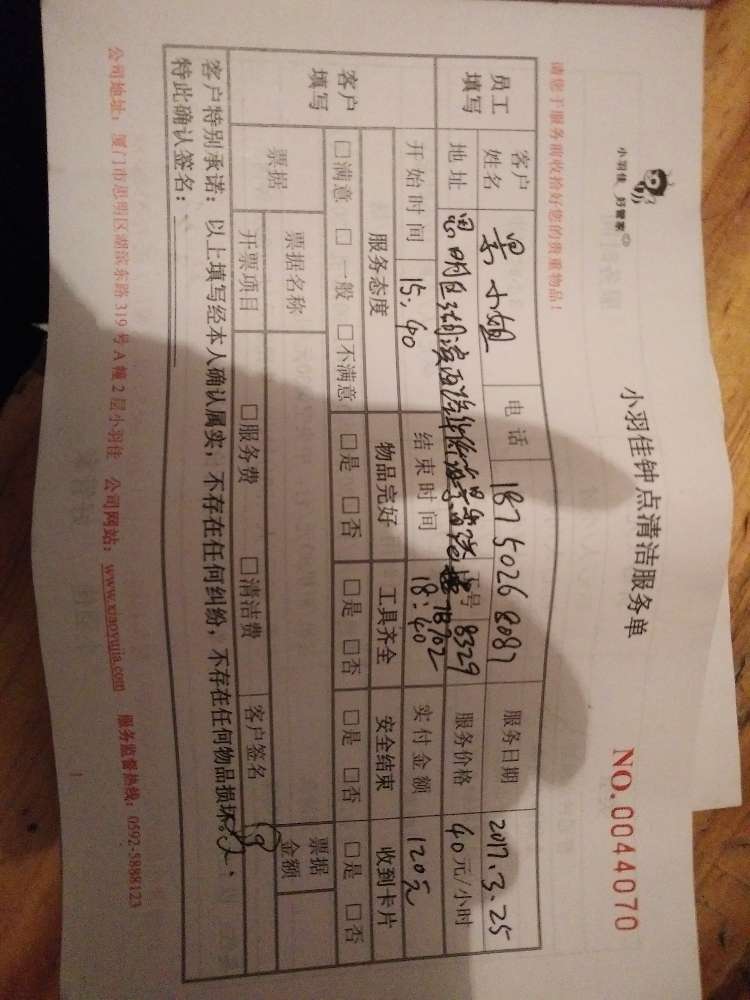 小羽佳 好管家
小羽佳钟点清洁服务单
NO.0044070
请您于服务前收拾好您的贵重物品！
员工填写 客户姓名 小姐 电话 187 5026 8087 服务日期 2017.3.25
地址 思明区湖滨西路 工号 8329 服务价格 40元/小时
702
开始时间 15:40 结束时间 18:40 实付金额 120元
客户填写 服务态度 物品完好 工具齐全 安全结束 收到卡片
□满意 □一般 □不满意 □是 □否 □是 □否 □是 □否 □是 □否
票据 票据名称 票据金额
开票项目 □服务费 □清洁费 客户签名
客户特别承诺：以上填写经本人确认属实，不存在任何纠纷，不存在任何物品损坏。
特此确认签名：
公司地址：厦门市思明区湖滨东路319号A幢2层小羽佳 公司网站：www.xiaoyujia.com 服务监督热线：0592-5888123